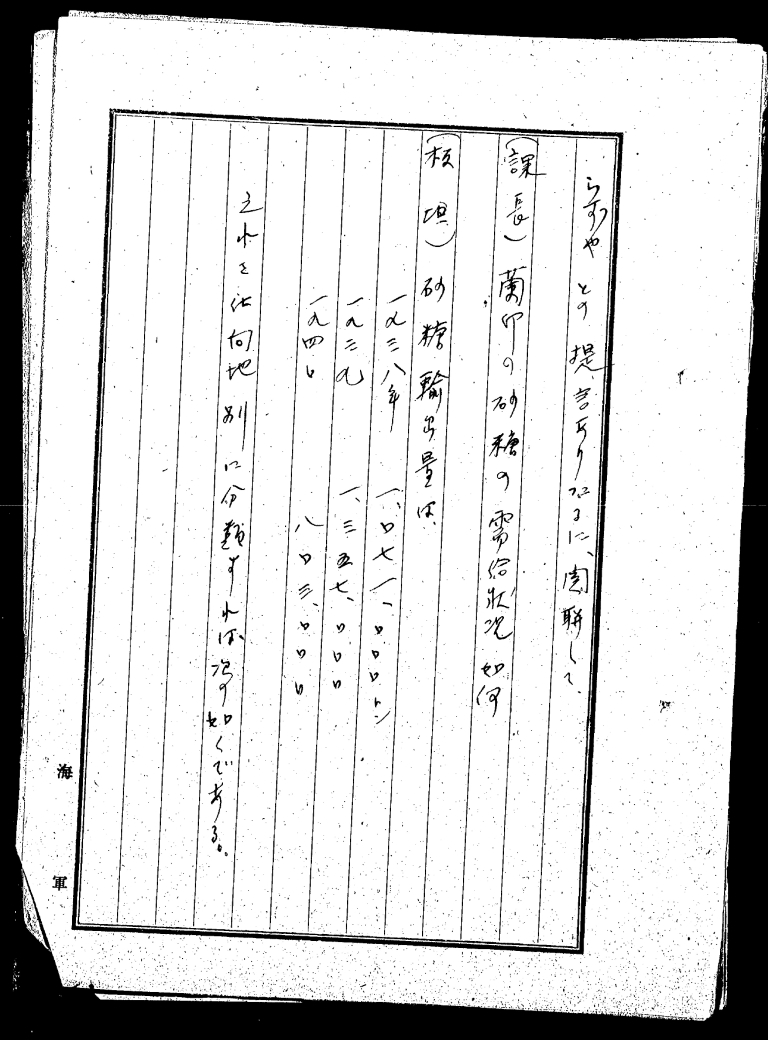 らずや との提言ありたるに関聯して、
(課長) 蘭印の砂糖の需給狀况如何
砂糖輸出量は、
一九三八年 一、〇七一、〇〇〇トン
一九三九 一、三五七、〇〇〇
一九四〇 八〇三、〇〇〇
これを仕向地別に分類すれば次の如くである。
海軍